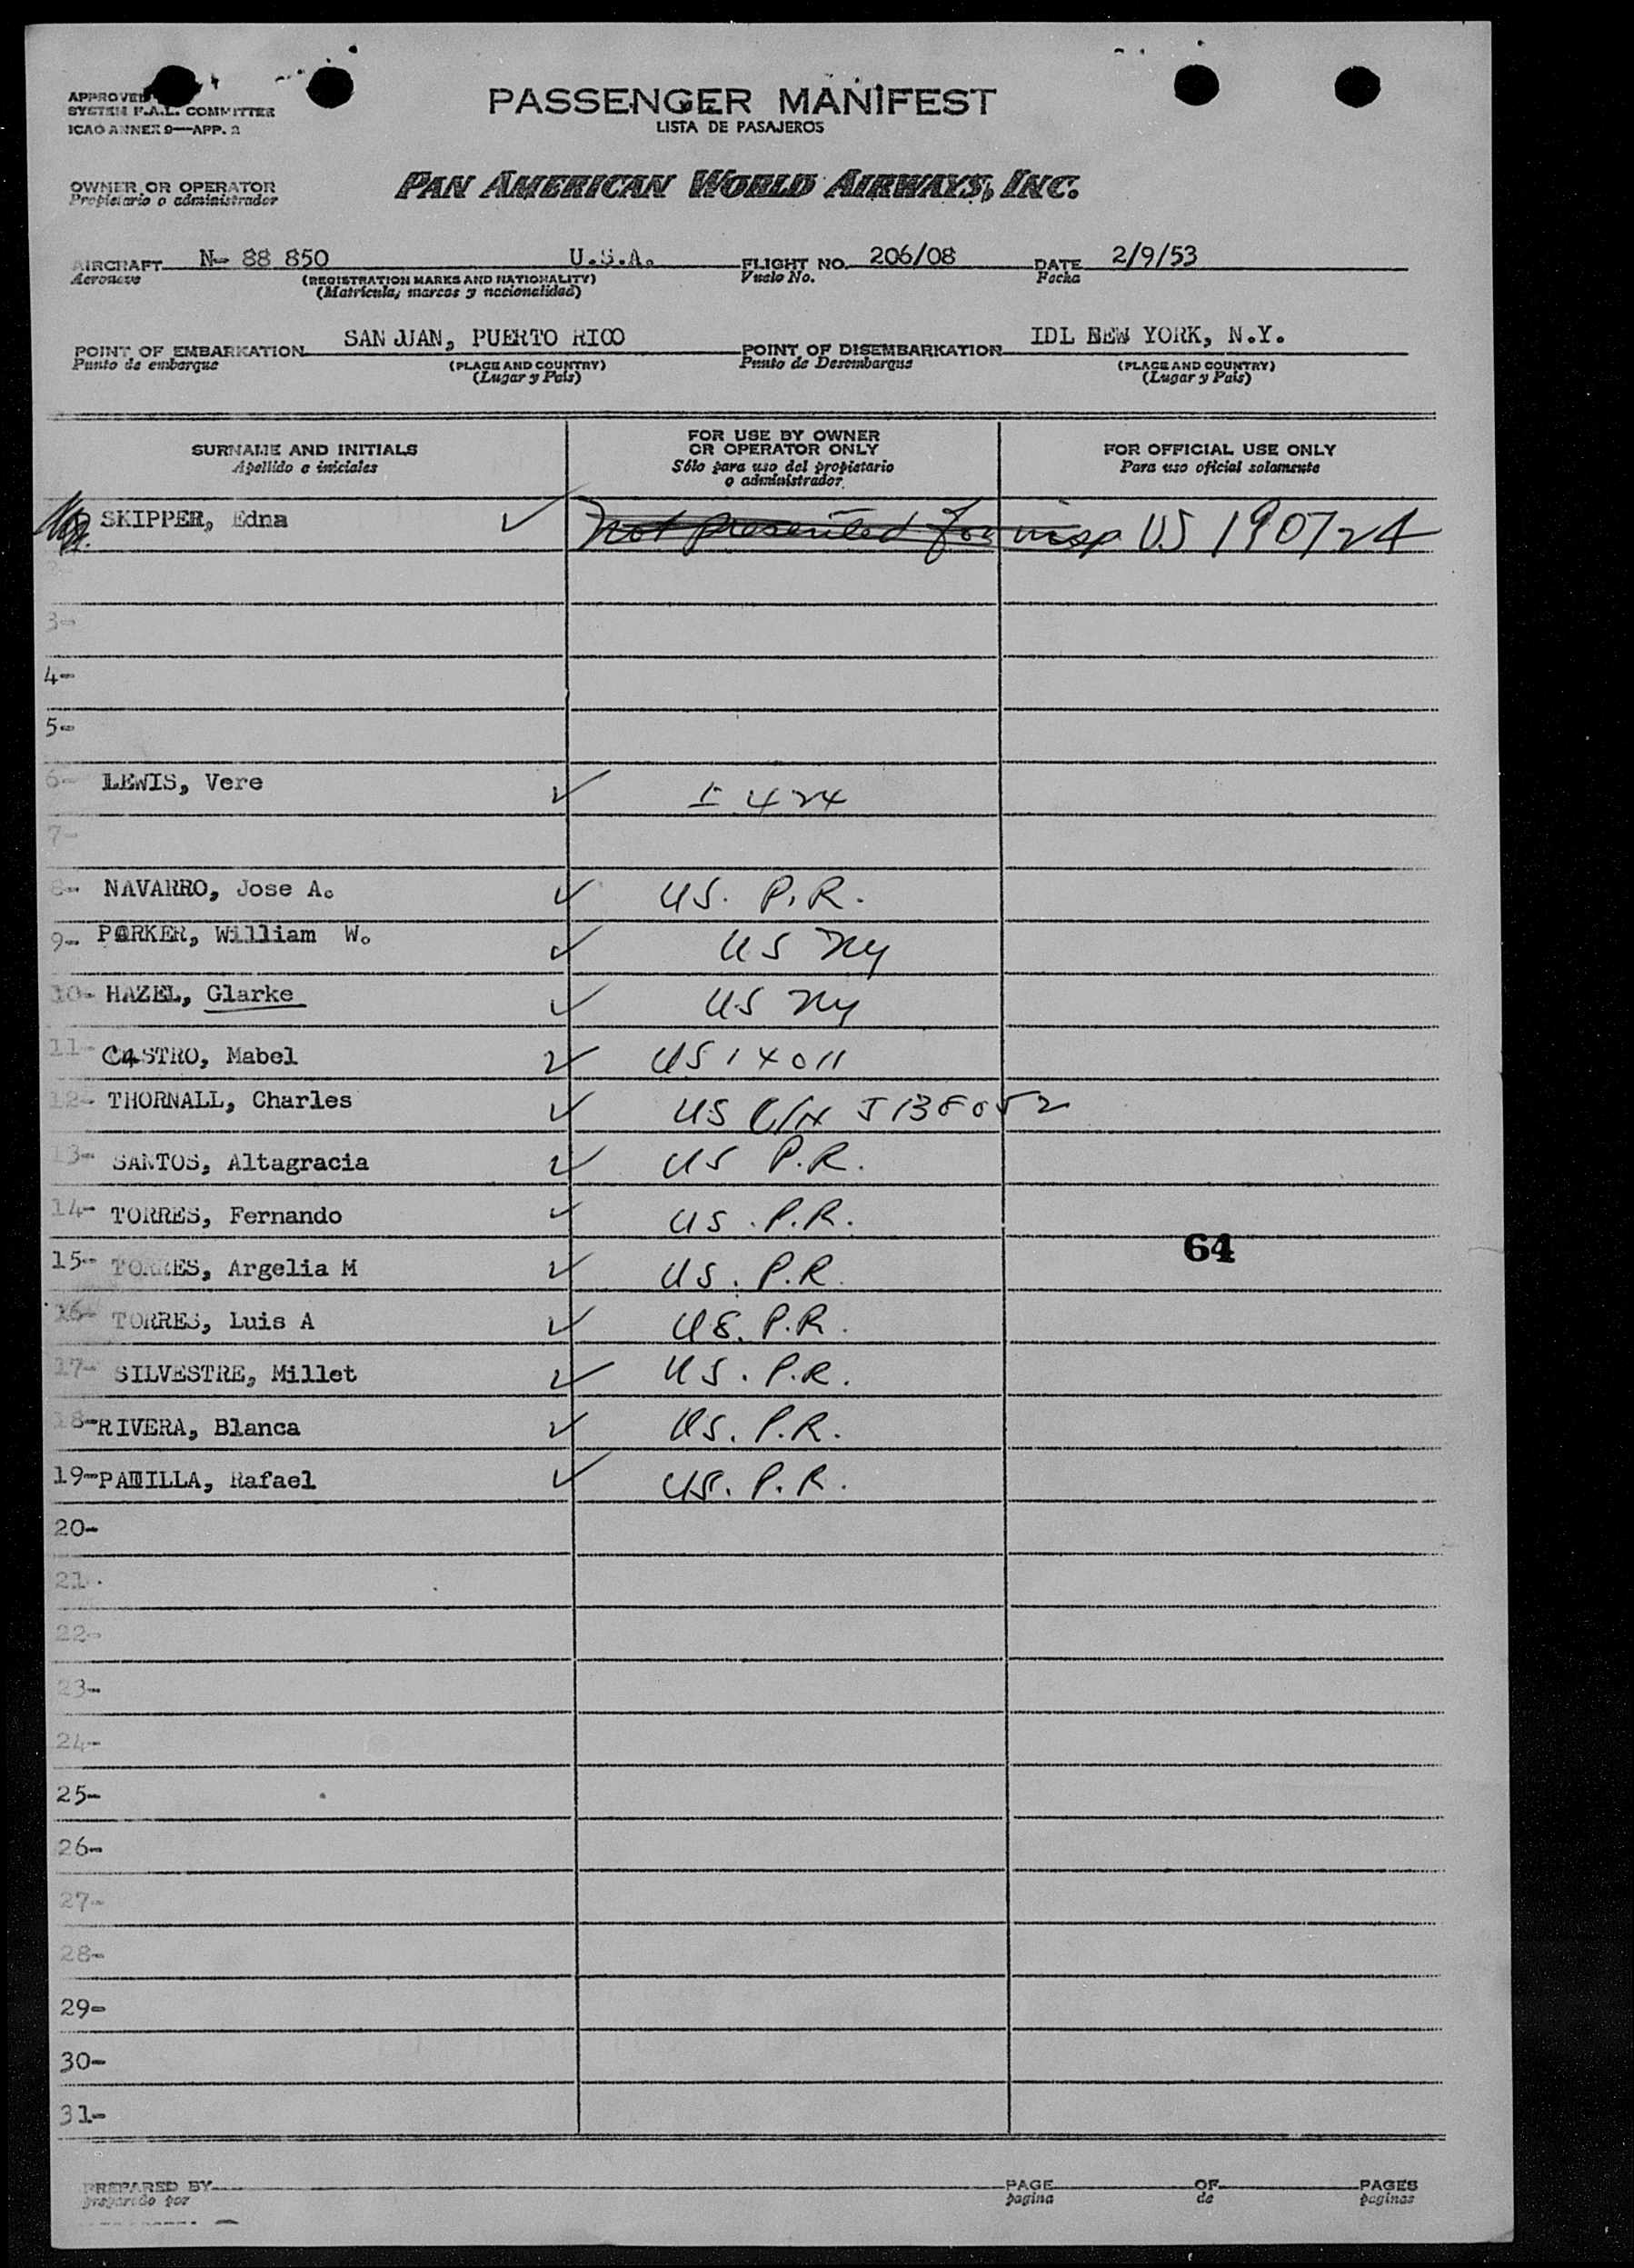 APPROVED
SYSTEM F.A.L. COMMITTEE
ICAO ANNEX 9—APP. 2
PASSENGER MANIFEST
LISTA DE PASAJEROS
OWNER OR OPERATOR
Propietario o administrador
PAN AMERICAN WORLD AIRWAYS, INC.
AIRCRAFT N- 88 850 U.S.A. FLIGHT NO. 206/08 DATE 2/9/53
Aeronave (REGISTRATION MARKS AND NATIONALITY) Vuelo No. Fecha
(Matrícula, marcas y nacionalidad)
POINT OF EMBARKATION SAN JUAN, PUERTO RICO POINT OF DISEMBARKATION IDL NEW YORK, N.Y.
Punto de embarque (PLACE AND COUNTRY) Punto de Desembarque (PLACE AND COUNTRY)
(Lugar y País) (Lugar y País)
SURNAME AND INITIALS
Apellido e iniciales
FOR USE BY OWNER
OR OPERATOR ONLY
Sólo para uso del propietario
o administrador
FOR OFFICIAL USE ONLY
Para uso oficial solamente
SKIPPER, Edna ✓ not presented for insp US 190724
3-
4-
5-
6- LEWIS, Vere ✓ 424
7-
8- NAVARRO, Jose A. ✓ US. P.R.
9- PARKER, William W. ✓ US NY
10- HAZEL, Glarke ✓ US NY
11- CASTRO, Mabel ✓ US 14011
12- THORNALL, Charles ✓ US C/N J138052
13- SANTOS, Altagracia ✓ US P.R.
14- TORRES, Fernando ✓ US. P.R.
15- TORRES, Argelia M ✓ US. P.R.
64
16- TORRES, Luis A ✓ US. P.R.
17- SILVESTRE, Millet ✓ US. P.R.
18- RIVERA, Blanca ✓ US. P.R.
19- PADILLA, Rafael ✓ US. P.R.
20-
21-
22-
23-
24-
25-
26-
27-
28-
29-
30-
31-
PREPARED BY PAGE OF PAGES
preparado por pagina de paginas